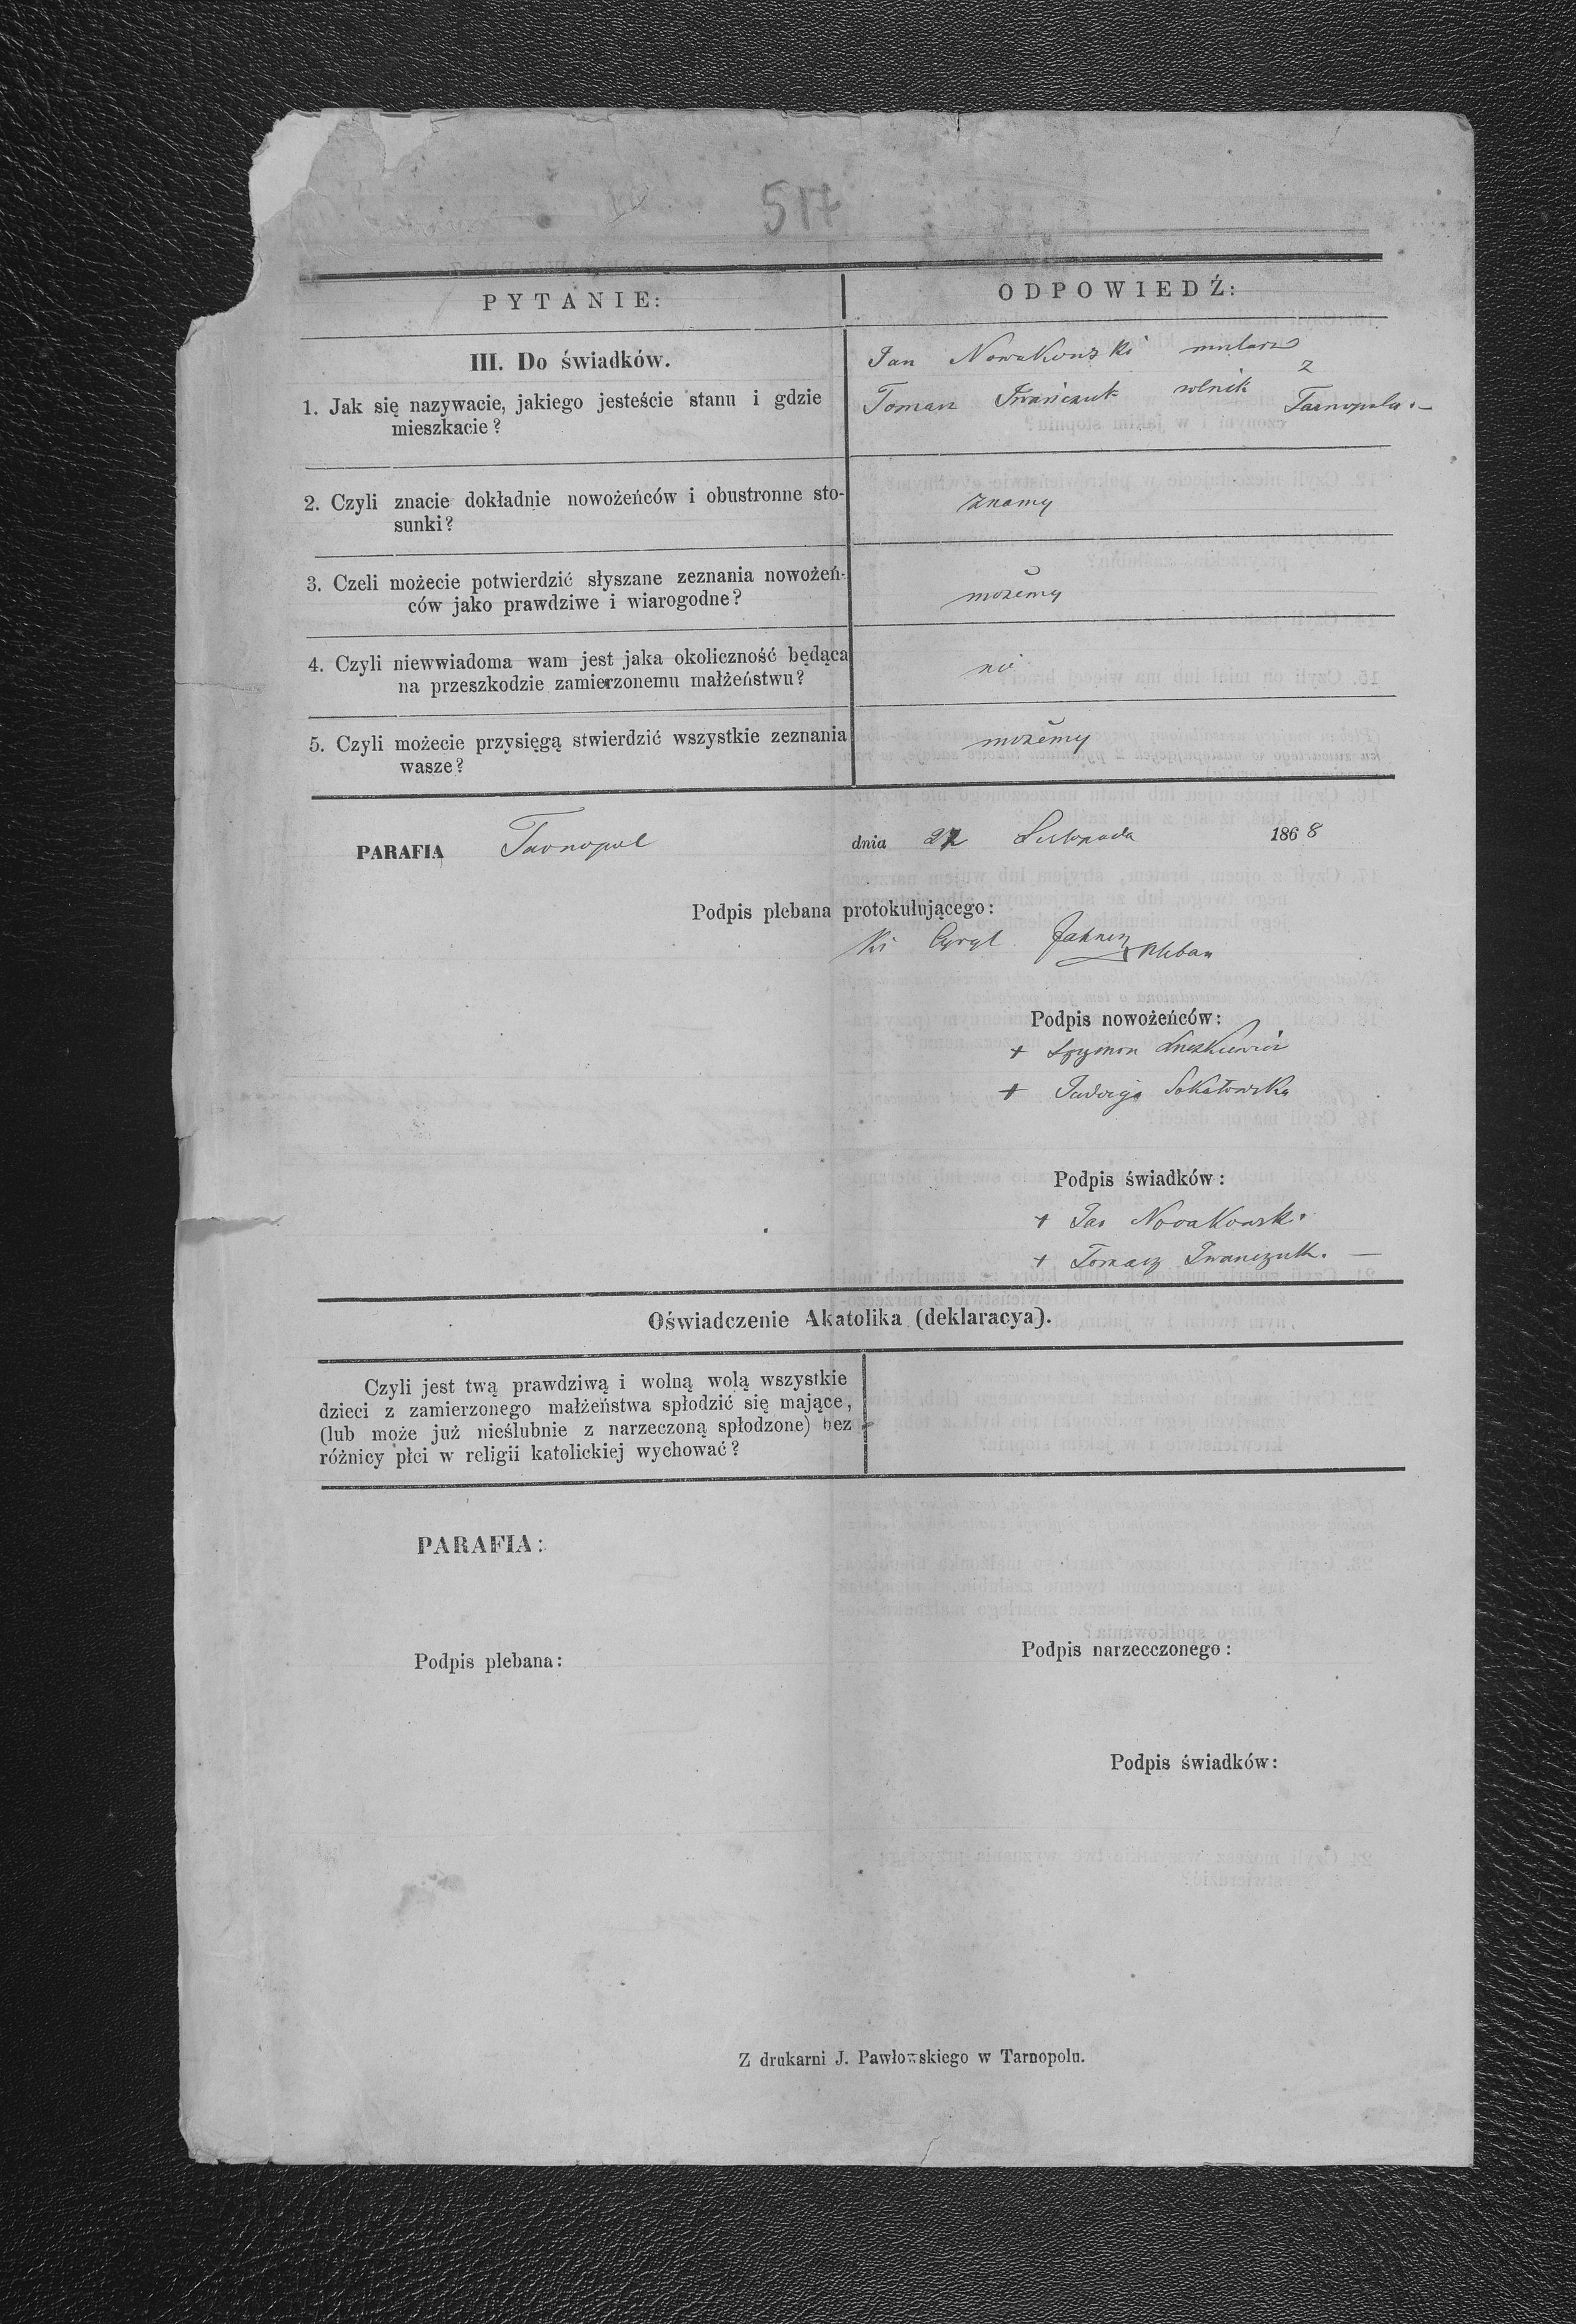 517
PYTANIE:
ODPOWIEDŹ:
III. Do świadków.
1. Jak się nazywacie, jakiego jesteście stanu i gdzie
mieszkacie?
Jan Nowakowski mularz
Tomasz Iwańczuk rolnik z Tarnopola.—
2. Czyli znacie dokładnie nowożeńców i obustronne sto-
sunki?
znamy
3. Czeli możecie potwierdzić słyszane zeznania nowożeń-
ców jako prawdziwe i wiarogodne?
możemy
4. Czyli niewwiadoma wam jest jaka okoliczność będąca
na przeszkodzie zamierzonemu małżeństwu?
nie
5. Czyli możecie przysięgą stwierdzić wszystkie zeznania
wasze?
możemy
PARAFIA Tarnopol dnia Listopada 1868
Podpis plebana protokułującego:
Cyryl pleban
Podpis nowożeńców:
+ Szymon
+ Jadwiga Sokołowska
Podpis świadków:
+ Jan Nowakowski
+ Tomasz Iwanczuk. —
Oświadczenie Akatolika (deklaracya).
Czyli jest twą prawdziwą i wolną wolą wszystkie
dzieci z zamierzonego małżeństwa spłodzić się mające,
(lub może już nieślubnie z narzeczoną spłodzone) bez
różnicy płci w religii katolickiej wychować?
PARAFIA:
Podpis plebana:
Podpis narzecczonego:
Podpis świadków:
Z drukarni J. Pawłowskiego w Tarnopolu.